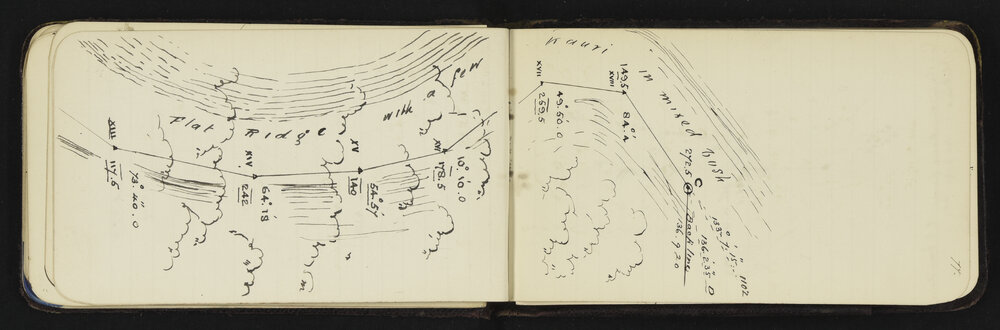 Flat Ridge with a few
Kauri
in mixed bush
XIII
117.6
73° 40.0
XIV
242
64° 18
XV
140
54° 51
XVI
178.5
10° 10.0
XVII
259.5
49° 50.0
XVIII
149.54
84.4
272.5
C
Back line
136.9.20
133° 7' 15"
136.2'35" 0
1102